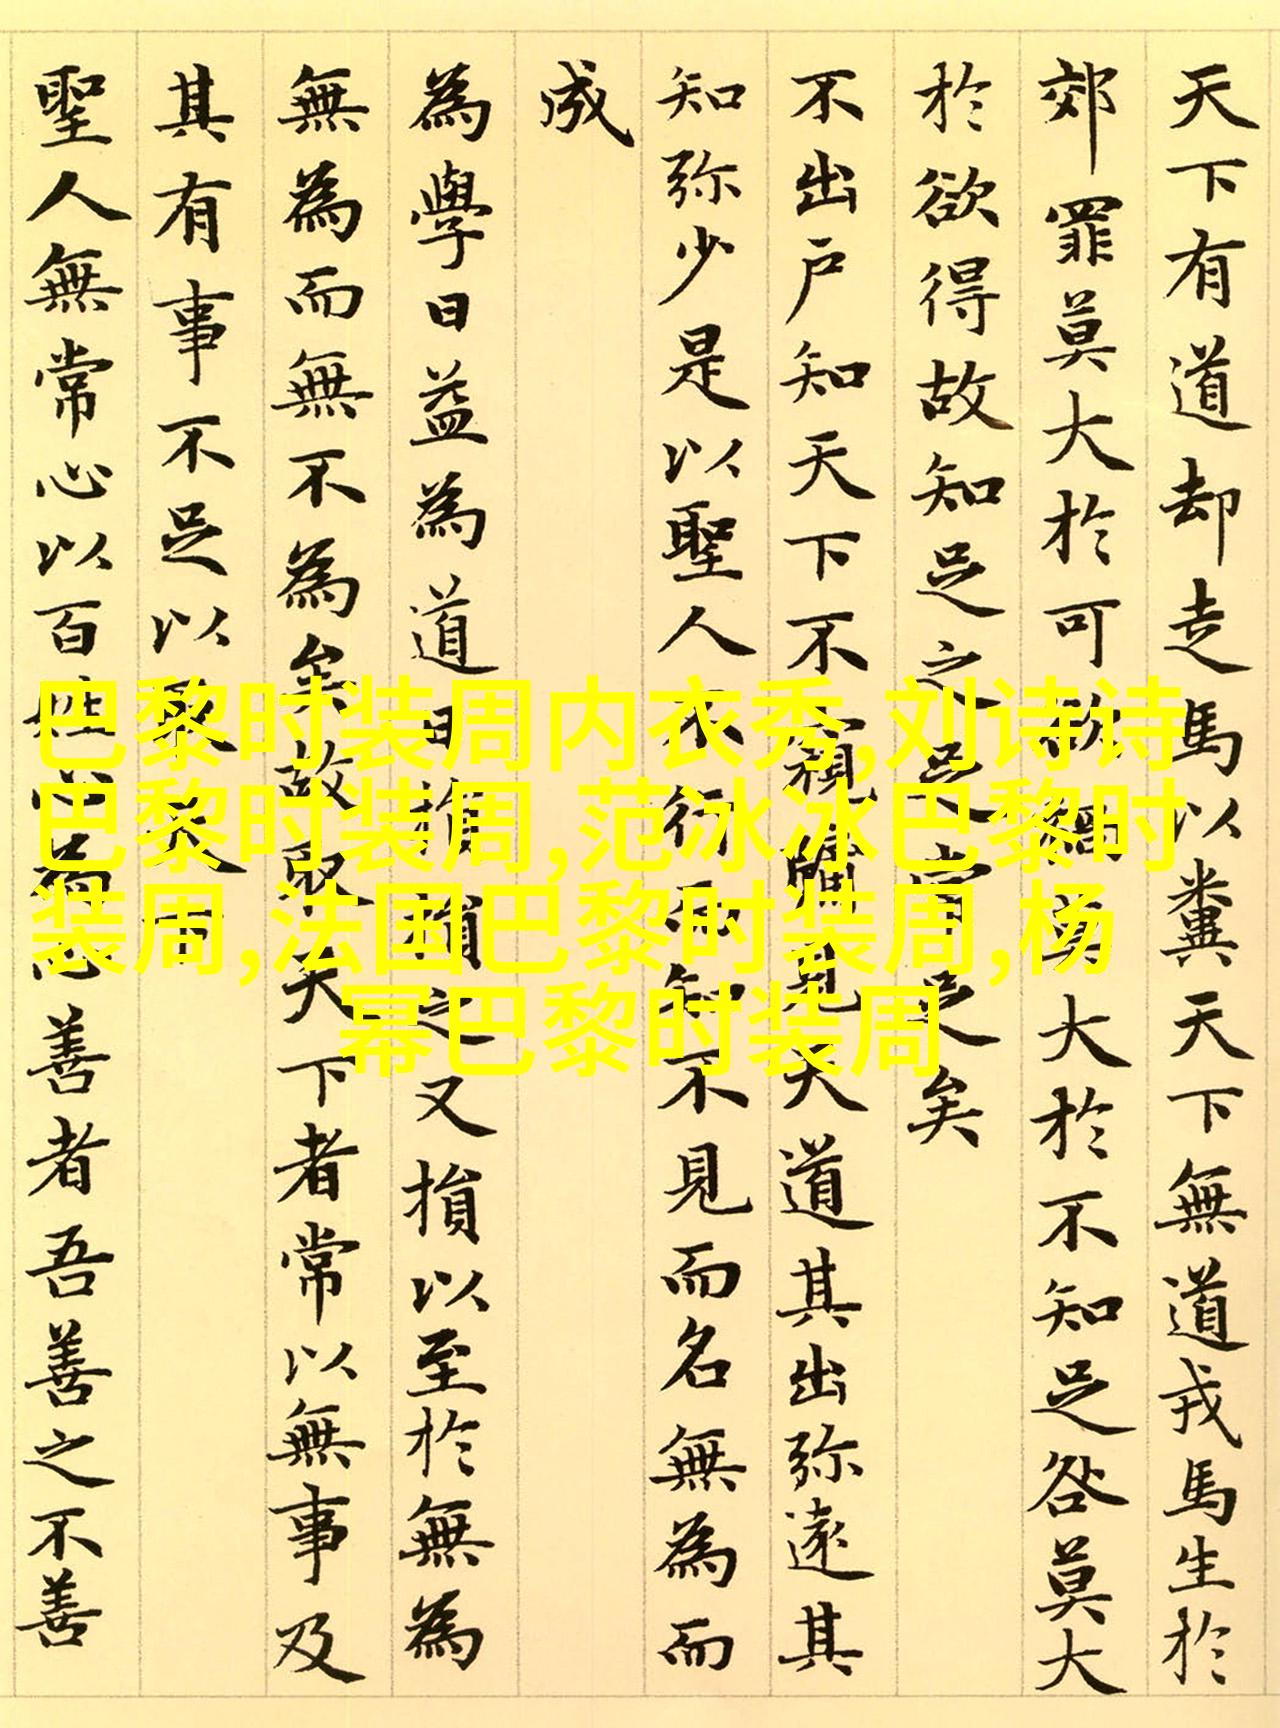 天下有道却走馬以糞天下無道戎馬生於
郊罪莫大於可欲禍莫大於不知足咎莫大
於欲得故知足之足常足矣
不出戶知天下不窺牖見天道其出弥遠其
知弥少是以聖人不行而知不見而名無為而
成
為學日益為道日損損之又損以至於無為
無為而無不為矣故取天下者常以無事及
其有事不足以取天下
聖人無常心以百姓心為心善者吾善之不善
巴黎时装周内衣秀,刘诗诗
巴黎时装周,范冰冰巴黎时
装周,法国巴黎时装周,杨
幂巴黎时装周